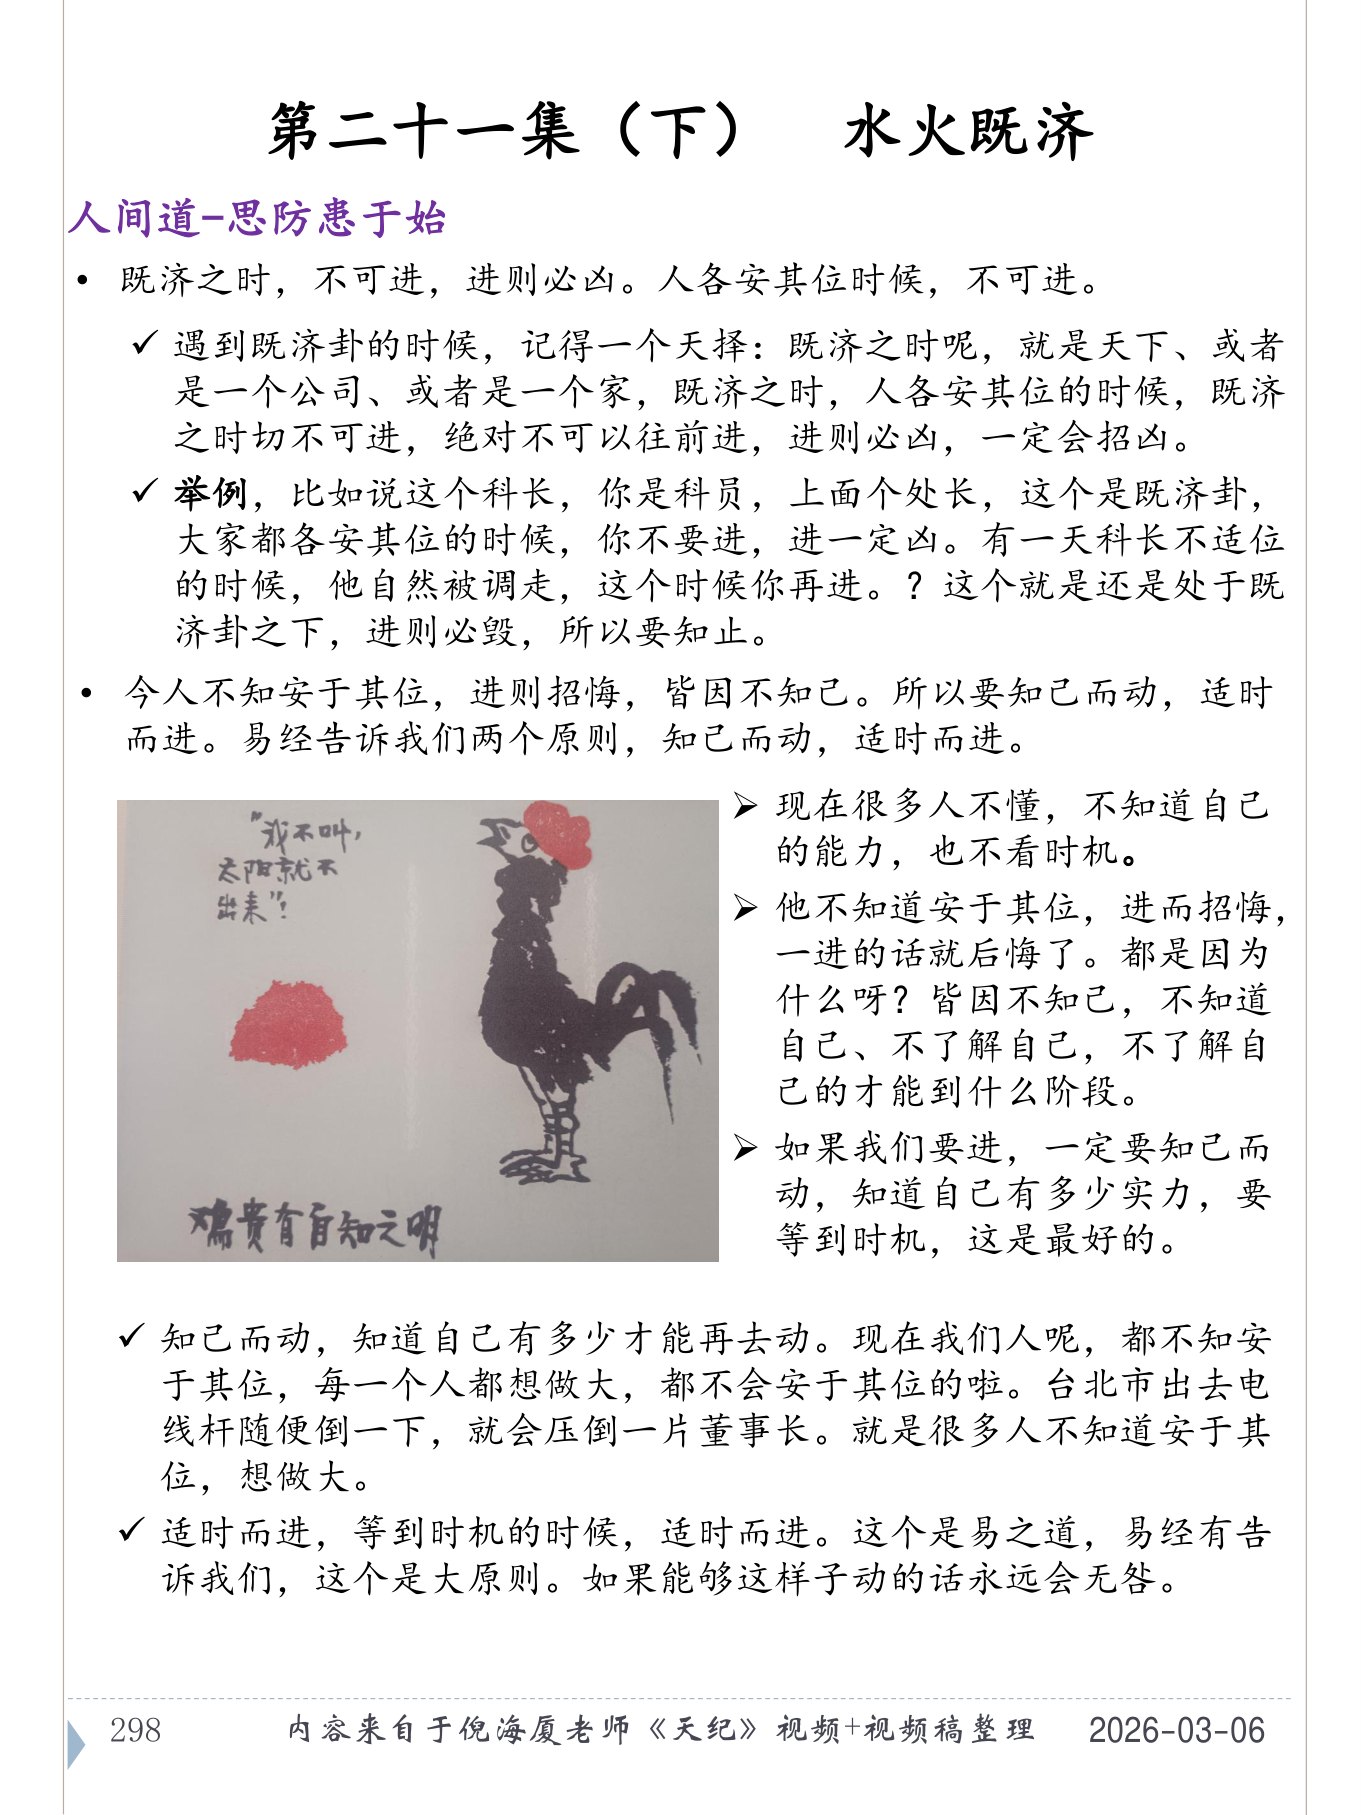 第二十一集（下） 水火既济
人间道-思防患于始
• 既济之时，不可进，进则必凶。人各安其位时候，不可进。
✓ 遇到既济卦的时候，记得一个天择：既济之时呢，就是天下、或者
是一个公司、或者是一个家，既济之时，人各安其位的时候，既济
之时切不可进，绝对不可以往前进，进则必凶，一定会招凶。
✓ 举例，比如说这个科长，你是科员，上面个处长，这个是既济卦，
大家都各安其位的时候，你不要进，进一定凶。有一天科长不适位
的时候，他自然被调走，这个时候你再进。？这个就是还是处于既
济卦之下，进则必毁，所以要知止。
• 今人不知安于其位，进则招悔，皆因不知己。所以要知己而动，适时
而进。易经告诉我们两个原则，知己而动，适时而进。
"我不叫，
太阳就不
出来"！
鸡贵有自知之明
➢ 现在很多人不懂，不知道自己
的能力，也不看时机。
➢ 他不知道安于其位，进而招悔，
一进的话就后悔了。都是因为
什么呀？皆因不知己，不知道
自己、不了解自己，不了解自
己的才能到什么阶段。
➢ 如果我们要进，一定要知己而
动，知道自己有多少实力，要
等到时机，这是最好的。
✓ 知己而动，知道自己有多少才能再去动。现在我们人呢，都不知安
于其位，每一个人都想做大，都不会安于其位的啦。台北市出去电
线杆随便倒一下，就会压倒一片董事长。就是很多人不知道安于其
位，想做大。
✓ 适时而进，等到时机的时候，适时而进。这个是易之道，易经有告
诉我们，这个是大原则。如果能够这样子动的话永远会无咎。
298 内容来自于倪海厦老师《天纪》视频+视频稿整理 2026-03-06